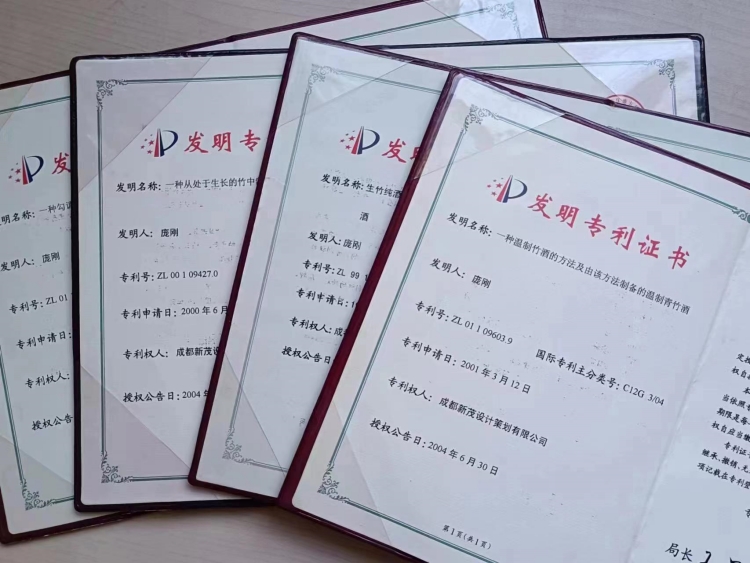 发明
发明名称：一种勾
发明人：庞刚
专利号：ZL 01
专利申请日：
专利权人：
授权公告日：
发明专
发明名称：一种从处于生长的竹中
发明人：庞刚
专利号：ZL 00 1 09427.0
专利申请日：2000 年 6 月
专利权人：成都新茂设计
授权公告日：2004 年
发明专
发明名称：生竹纯酒
酒
发明人：庞刚
专利号：ZL 99 1
专利申请日：1
专利权人：成都
授权公告日：
发明专利证书
发明名称：一种温制竹酒的方法及由该方法制备的温制青竹酒
发明人：庞刚
专利号：ZL 01 1 09603.9 国际专利主分类号：C12G 3/04
专利申请日：2001 年 3 月 12 日
专利权人：成都新茂设计策划有限公司
授权公告日：2004 年 6 月 30 日
第 1 页（共 1 页）
权自
本
当依照
期限是每
权自应当
专利证
继承、撤销、无
项记载在专利登
专
局长